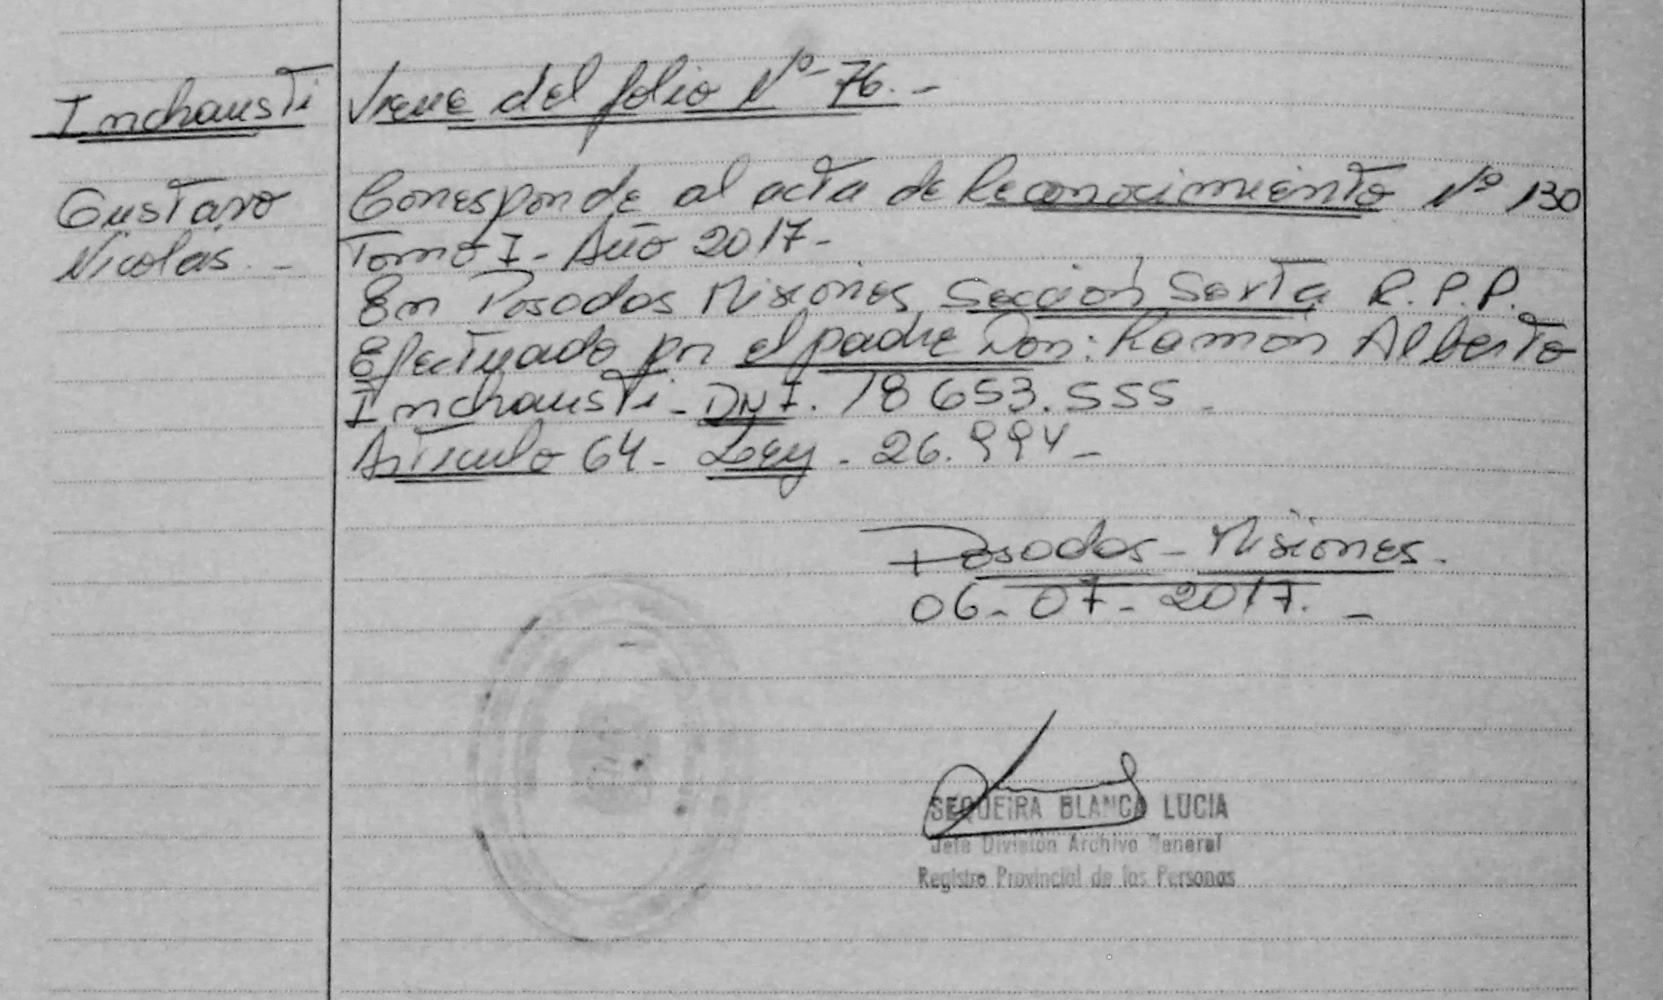 Inchausti
Gustavo
Nicolás. -
Viene del folio Nº 76. -
Corresponde al acta de Reconocimiento Nº 130
Tomo I - Año 2017 -
En Posadas Misiones Sección Sexta R.P.P.
Efectuado por el padre Don: Ramón Alberto
Inchausti - DNI. 18 653.555 -
Artículo 64 - Ley - 26.994 -
Posadas - Misiones -
06 - 07 - 2017. -
SEQUEIRA BLANCA LUCIA
Jefe División Archivo General
Registro Provincial de las Personas